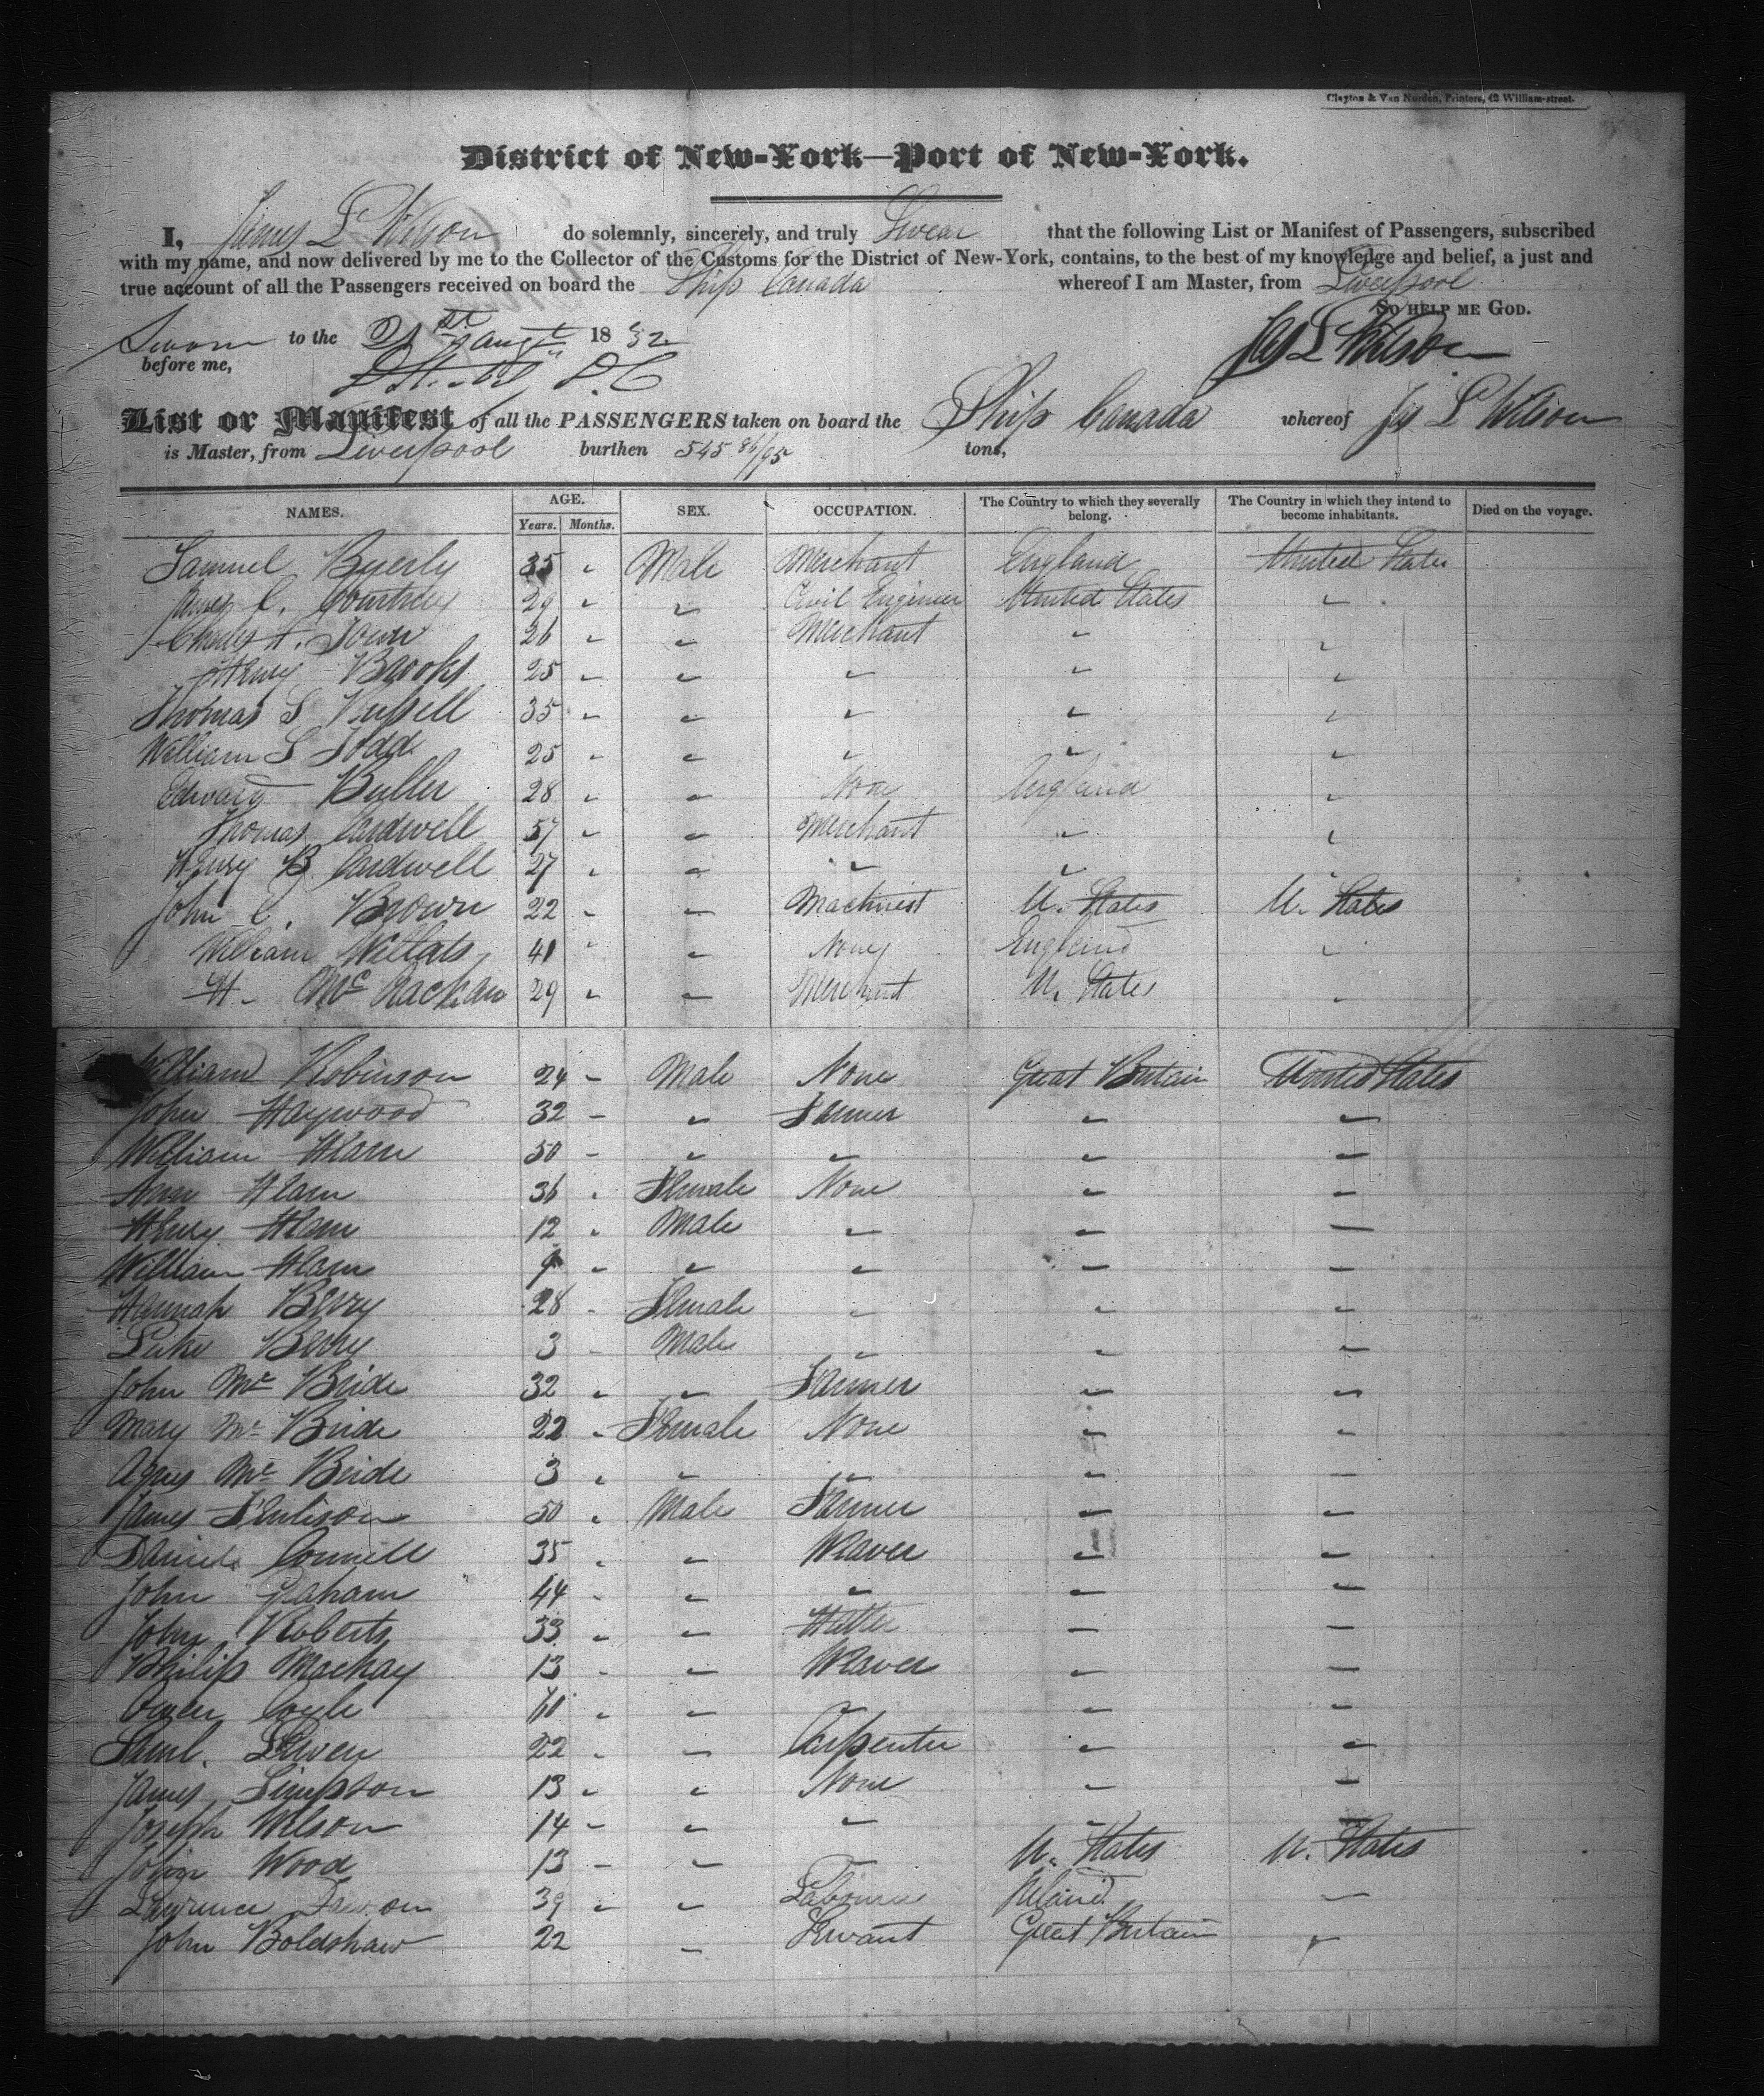 Clayton & Van Norden, Printers, 42 William-street.
District of New-York—Port of New-York.
I, James L Wilson do solemnly, sincerely, and truly Swear that the following List or Manifest of Passengers, subscribed
with my name, and now delivered by me to the Collector of the Customs for the District of New-York, contains, to the best of my knowledge and belief, a just and
true account of all the Passengers received on board the Ship Canada whereof I am Master, from Liverpool
So help me God.
Sworn to the 21st augt 1832
before me, D.C
Jas L Wilson
List or Manifest of all the PASSENGERS taken on board the Ship Canada whereof Jas L Wilson
is Master, from Liverpool burthen 545 86/95 tons,
NAMES. AGE. Years. Months. SEX. OCCUPATION. The Country to which they severally belong. The Country in which they intend to become inhabitants. Died on the voyage.
Samuel Byerly 35 " Male Merchant England United States
James C. Courtney 29 " " Civil Engineer United States "
Charles A. 26 " " Merchant " "
Henry Brooks 25 " " " " "
Thomas S Russell 35 " " " " "
William S Todd 25 " " " " "
Edward Buller 28 " " None England "
Thomas Cardwell 57 " " Merchant " "
Henry B Cardwell 27 " " " " "
John C. Brown 22 " " Machinist U. States U. States
William Willats 41 " " None England "
H. Mc Rackan 29 " " Merchant U. States "
William Robinson 24 - Male None Great Britain United States
John Haywood 32 - " Farmer " "
William Ham 50 - " " " "
Ann Ham 36 " Female None " "
Henry Ham 12 " Male " " "
William Ham 9 " " " " "
Hannah Berry 28 - Female " " "
Luke Berry 3 - Male " " "
John Mc Bride 32 " " Farmer " "
Mary Mc Bride 22 " Female None " "
Agnes Mc Bride 3 " " " " "
James 50 " Male Farmer " "
Daniel Connell 35 " " Weaver " "
John Graham 44 " " " " "
John Roberts 33 " " Hatter " "
Philip Mackay 13 - " Weaver " "
Owen Coyle " " " " "
Saml. 22 " " Carpenter " "
James Simpson 13 " " None " "
Joseph Wilson 14 " " " " "
John Wood 13 - " " U. States U. States
Lawrence 39 " " Labourer Ireland "
John Boldshaw 22 " Servant Great Britain "